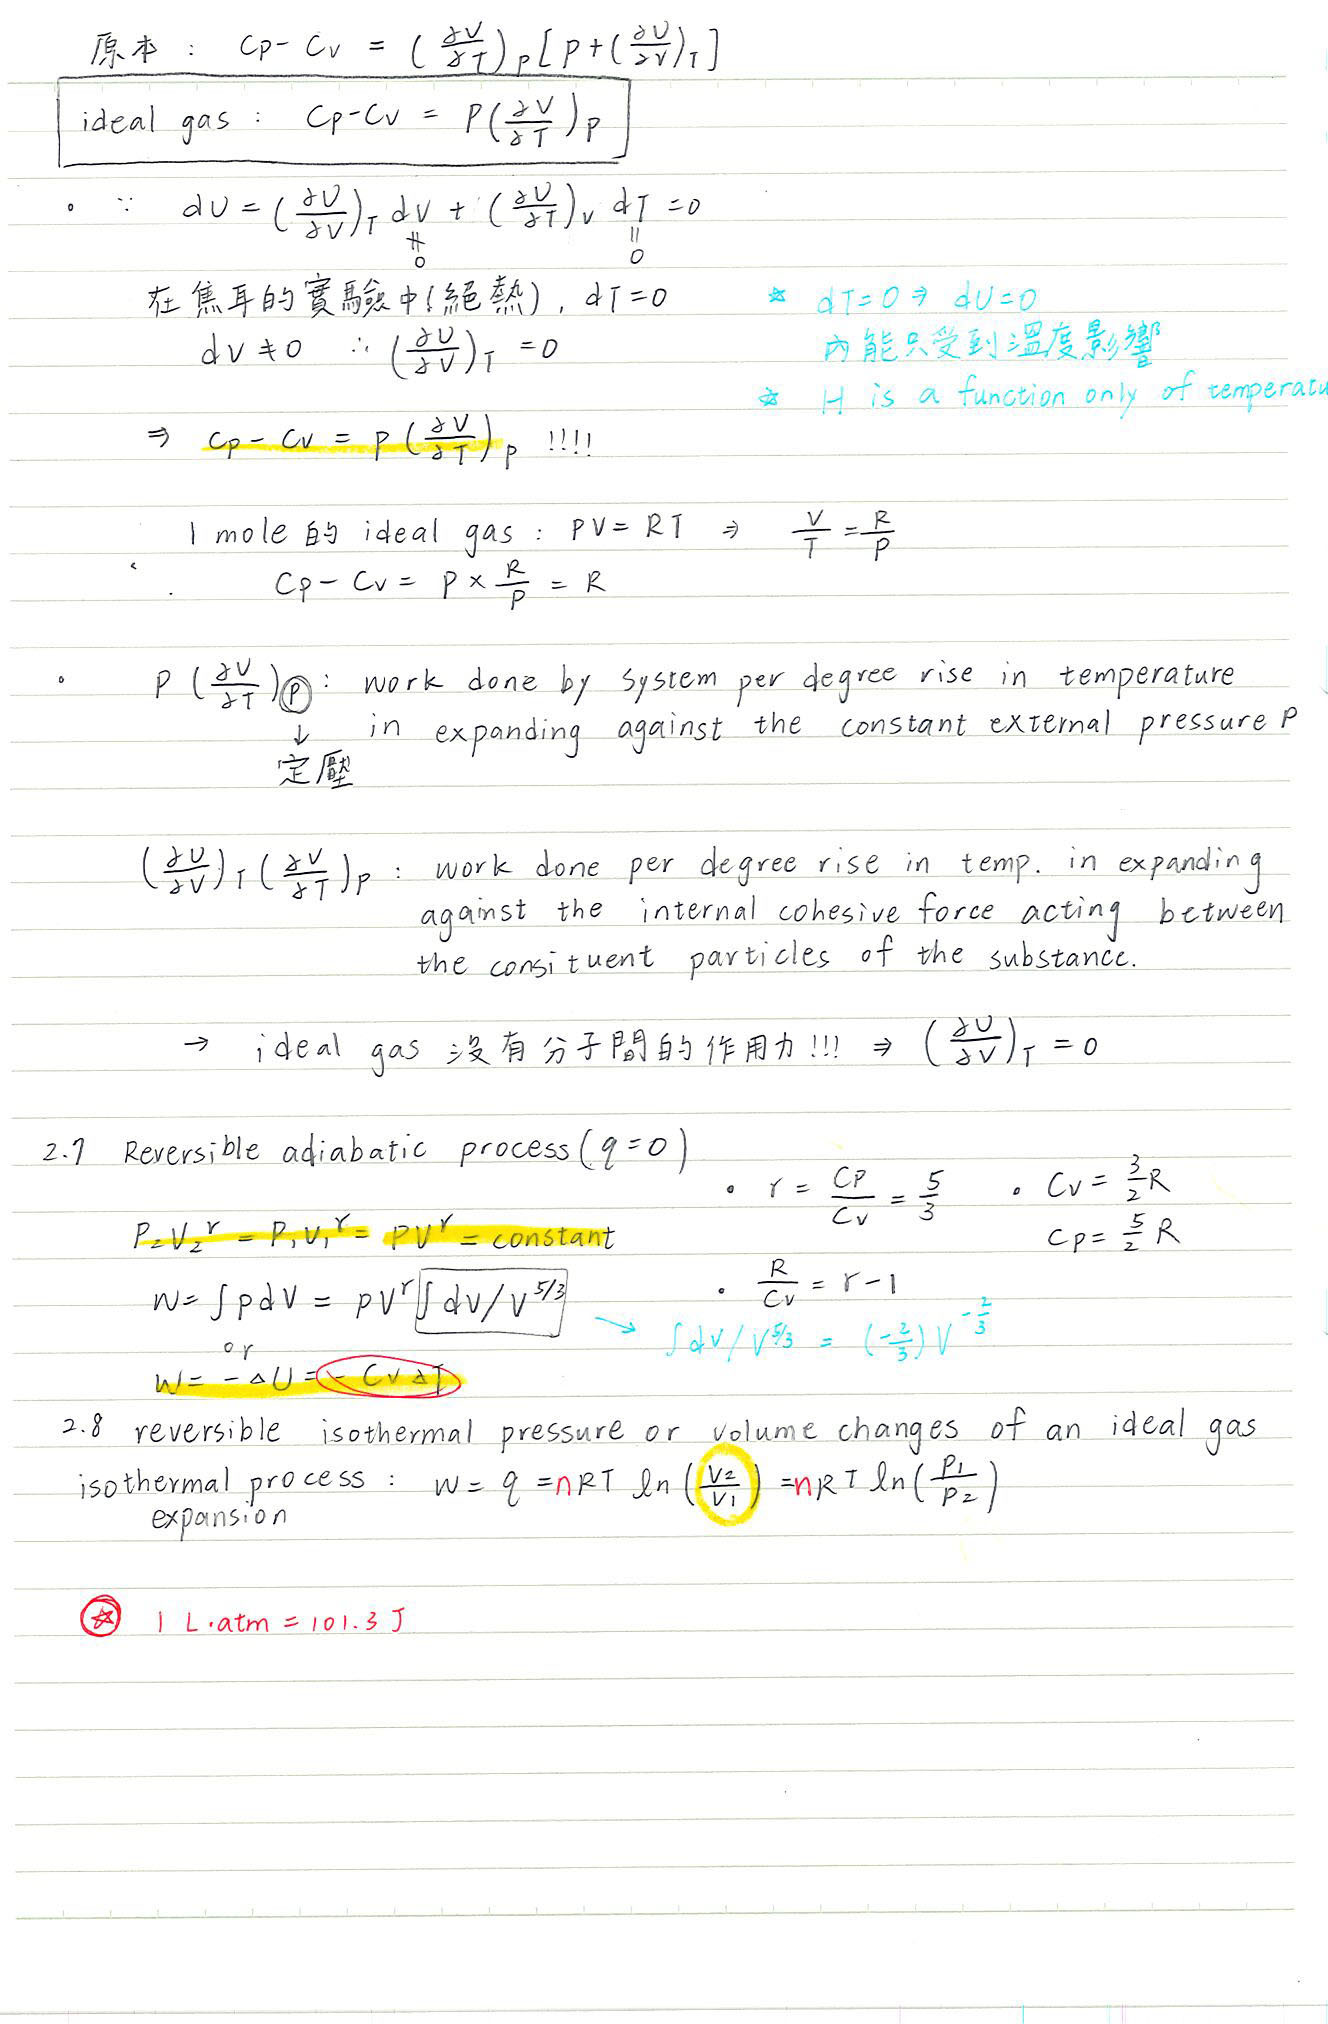 原本 : Cp - Cv = (∂V/∂T)p [P + (∂U/∂V)T]
ideal gas : Cp - Cv = P(∂V/∂T)P
• ∵ dU = (∂U/∂V)T dV + (∂U/∂T)V dT = 0
≠ 0 = 0
在焦耳的實驗中(絕熱), dT = 0
☆ dT = 0 ⇒ dU = 0
dV ≠ 0 ∴ (∂U/∂V)T = 0
內能只受到溫度影響
☆ H is a function only of temperatu
⇒ Cp - Cv = P(∂V/∂T)P !!!!
1 mole 的 ideal gas : PV = RT ⇒ V/T = R/P
Cp - Cv = P × R/P = R
• P(∂V/∂T)P : work done by system per degree rise in temperature
↓ in expanding against the constant external pressure P
定壓
(∂U/∂V)T (∂V/∂T)P : work done per degree rise in temp. in expanding
against the internal cohesive force acting between
the consituent particles of the substance.
→ ideal gas 沒有分子間的作用力!!! ⇒ (∂U/∂V)T = 0
2.7 Reversible adiabatic process (q=0)
• r = Cp/Cv = 5/3 • Cv = 3/2 R
P₂V₂^r = P₁V₁^r = PV^r = constant
Cp = 5/2 R
• R/Cv = r - 1
W = ∫PdV = PV^r ∫dV/V^5/3
→ ∫dV/V^5/3 = (-2/3) V^-2/3
or
W = -ΔU = -CvΔT
2.8 reversible isothermal pressure or volume changes of an ideal gas
isothermal process : W = q = nRT ln(V2/V1) = nRT ln(P1/P2)
expansion
☆ 1 L·atm = 101.3 J